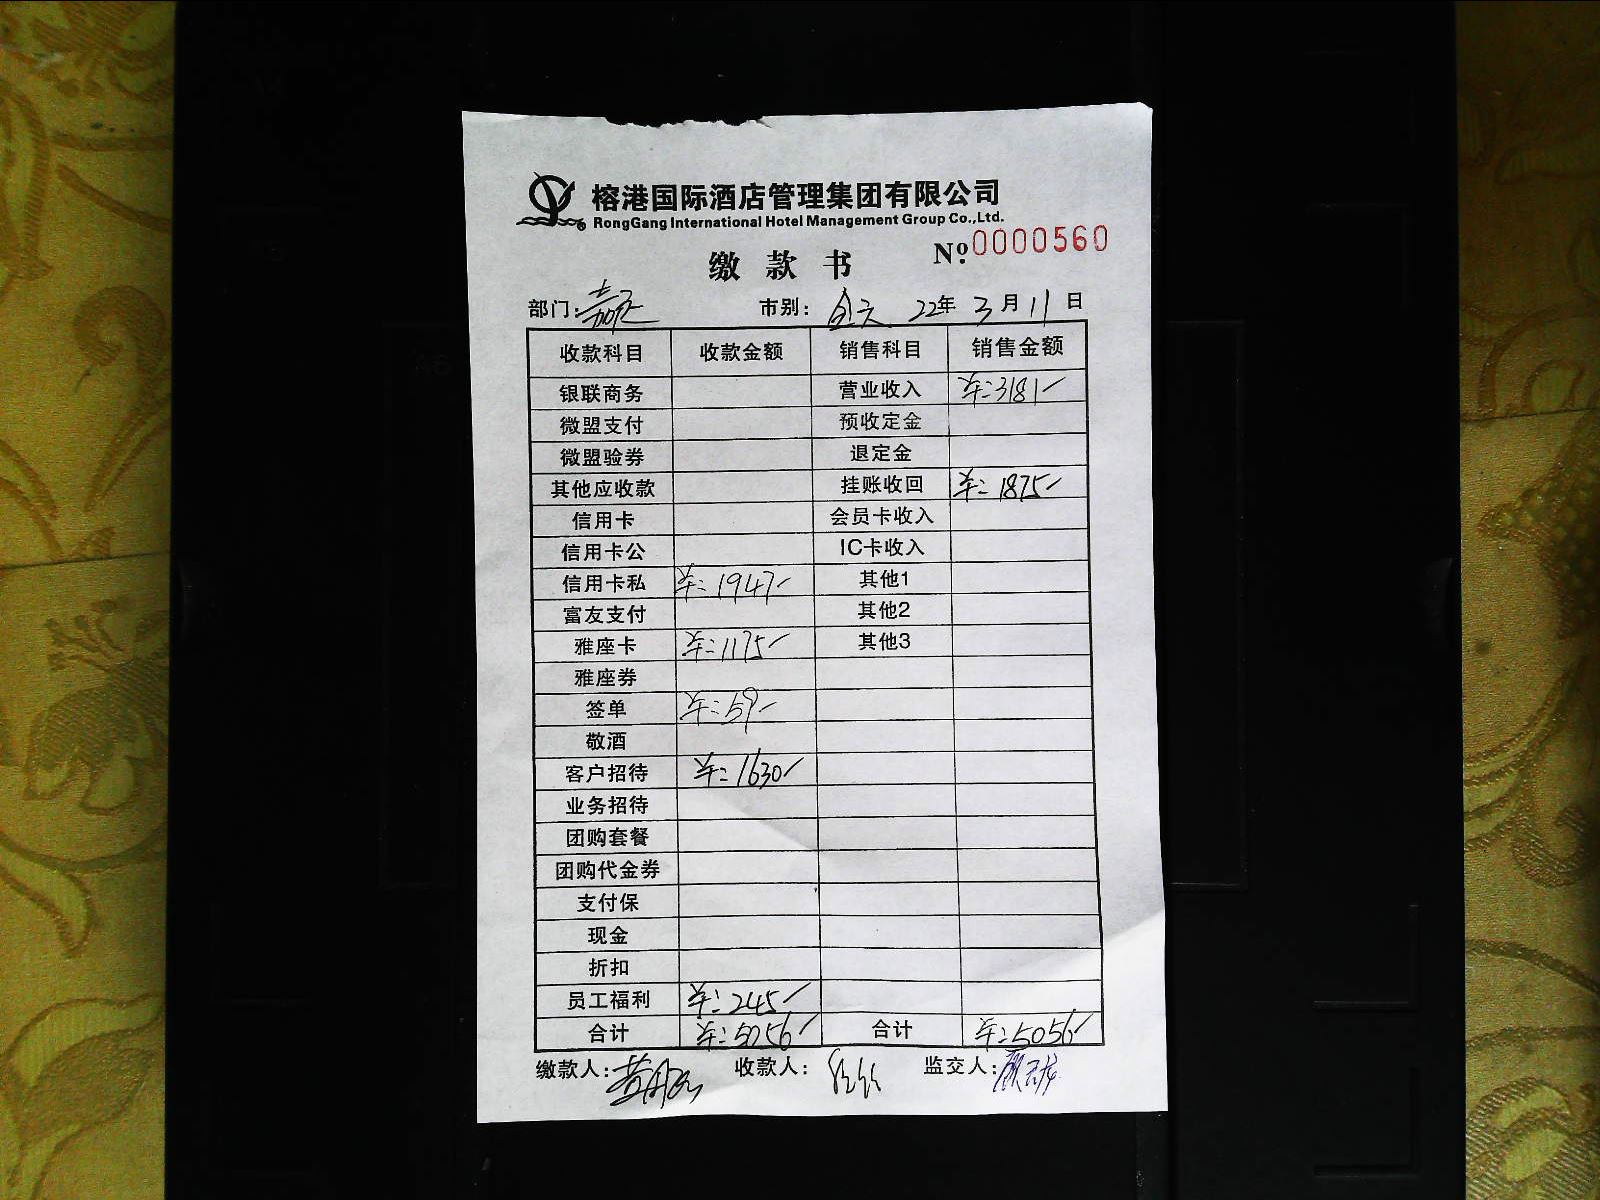 榕港国际酒店管理集团有限公司
RongGang International Hotel Management Group Co.,Ltd.
缴款书 №.0000560
部门: 市别: 全天 22年 3月 11日
收款科目 收款金额 销售科目 销售金额
银联商务 营业收入 ¥:3181
微盟支付 预收定金
微盟验券 退定金
其他应收款 挂账收回 ¥:1875
信用卡 会员卡收入
信用卡公 IC卡收入
信用卡私 ¥:1947 其他1
富友支付 其他2
雅座卡 ¥:1175 其他3
雅座券
签单 ¥:59
敬酒
客户招待 ¥:1630
业务招待
团购套餐
团购代金券
支付保
现金
折扣
员工福利 ¥:245
合计 ¥:5056 合计 ¥:5056
缴款人: 收款人: 监交人: